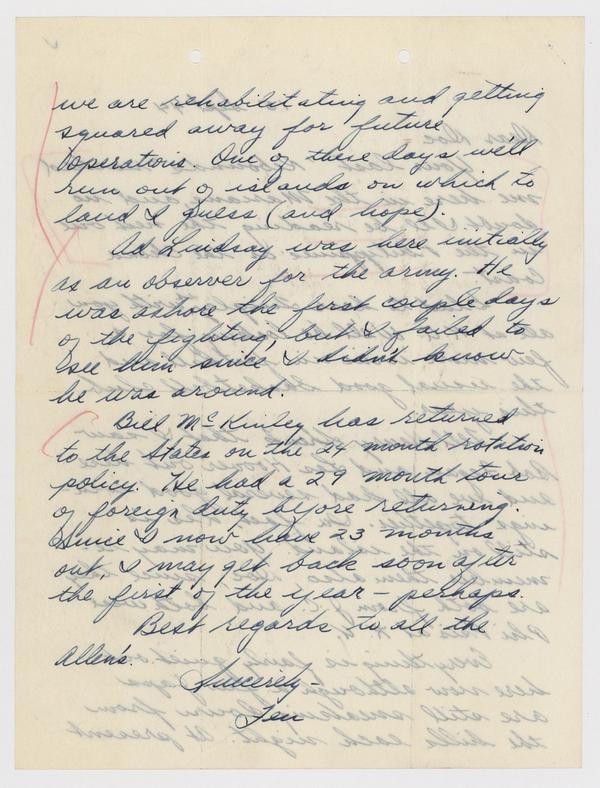 we are rehabilitating and getting
squared away for future
operations. One of these days we'll
run out of islands on which to
land I guess (and hope).
Ad Lindsay was here initially
as an observer for the army. He
was ashore the first couple days
of the fighting, but I failed to
see him since I didn't know
he was around.
Bill McKinley has returned
to the States on the 24 month rotation
policy. He had a 29 month tour
of foreign duty before returning.
Since I now have 23 months
out, I may get back soon after
the first of the year – perhaps.
Best regards to all the
Allen's.
Sincerely –